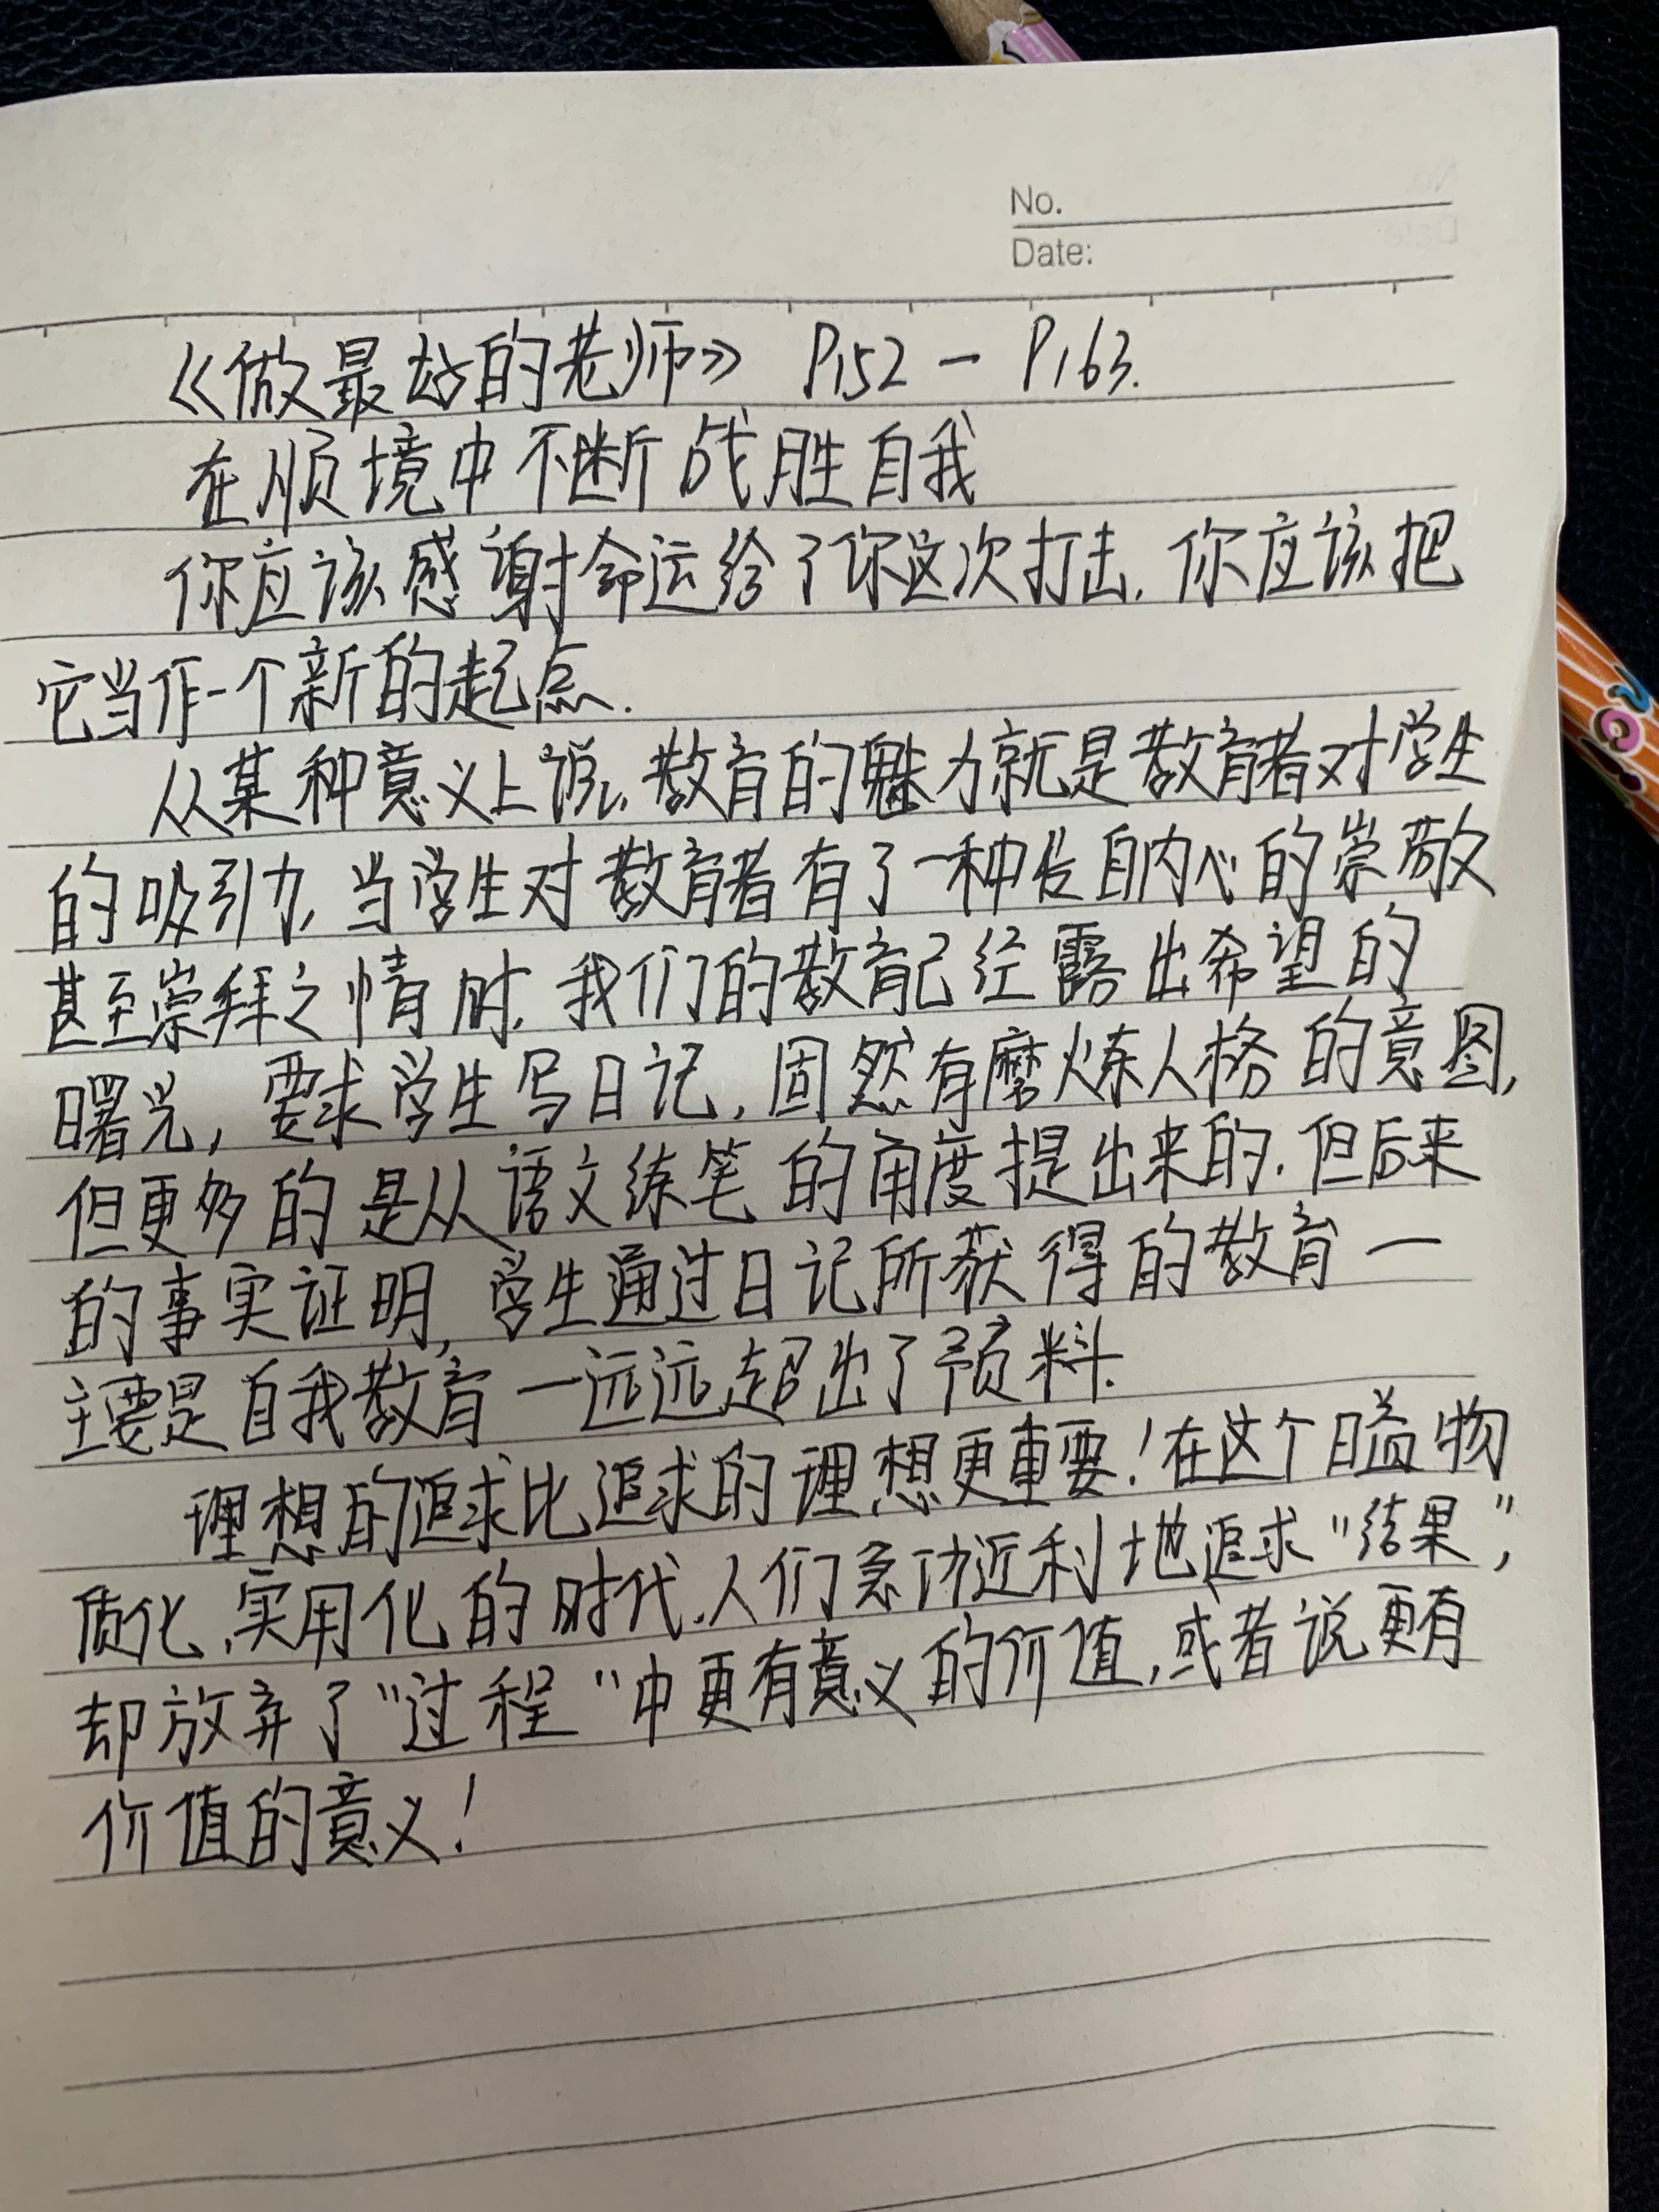 No.
Date:
《做最好的老师》 P152 - P163.
在顺境中不断战胜自我
你应该感谢命运给了你这次打击.你应该把
它当作一个新的起点.
从某种意义上说,教育的魅力就是教育者对学生
的吸引力,当学生对教育者有了一种发自内心的崇敬
甚至崇拜之情时,我们的教育已经露出希望的
曙光,要求学生写日记,固然有磨炼人格的意图,
但更多的是从语文练笔的角度提出来的.但后来
的事实证明,学生通过日记所获得的教育一
主要是自我教育一远远超出了预料.
理想的追求比追求的理想更重要!在这个日益物
质化、实用化的时代,人们急功近利地追求"结果",
却放弃了"过程"中更有意义的价值,或者说更有
价值的意义!